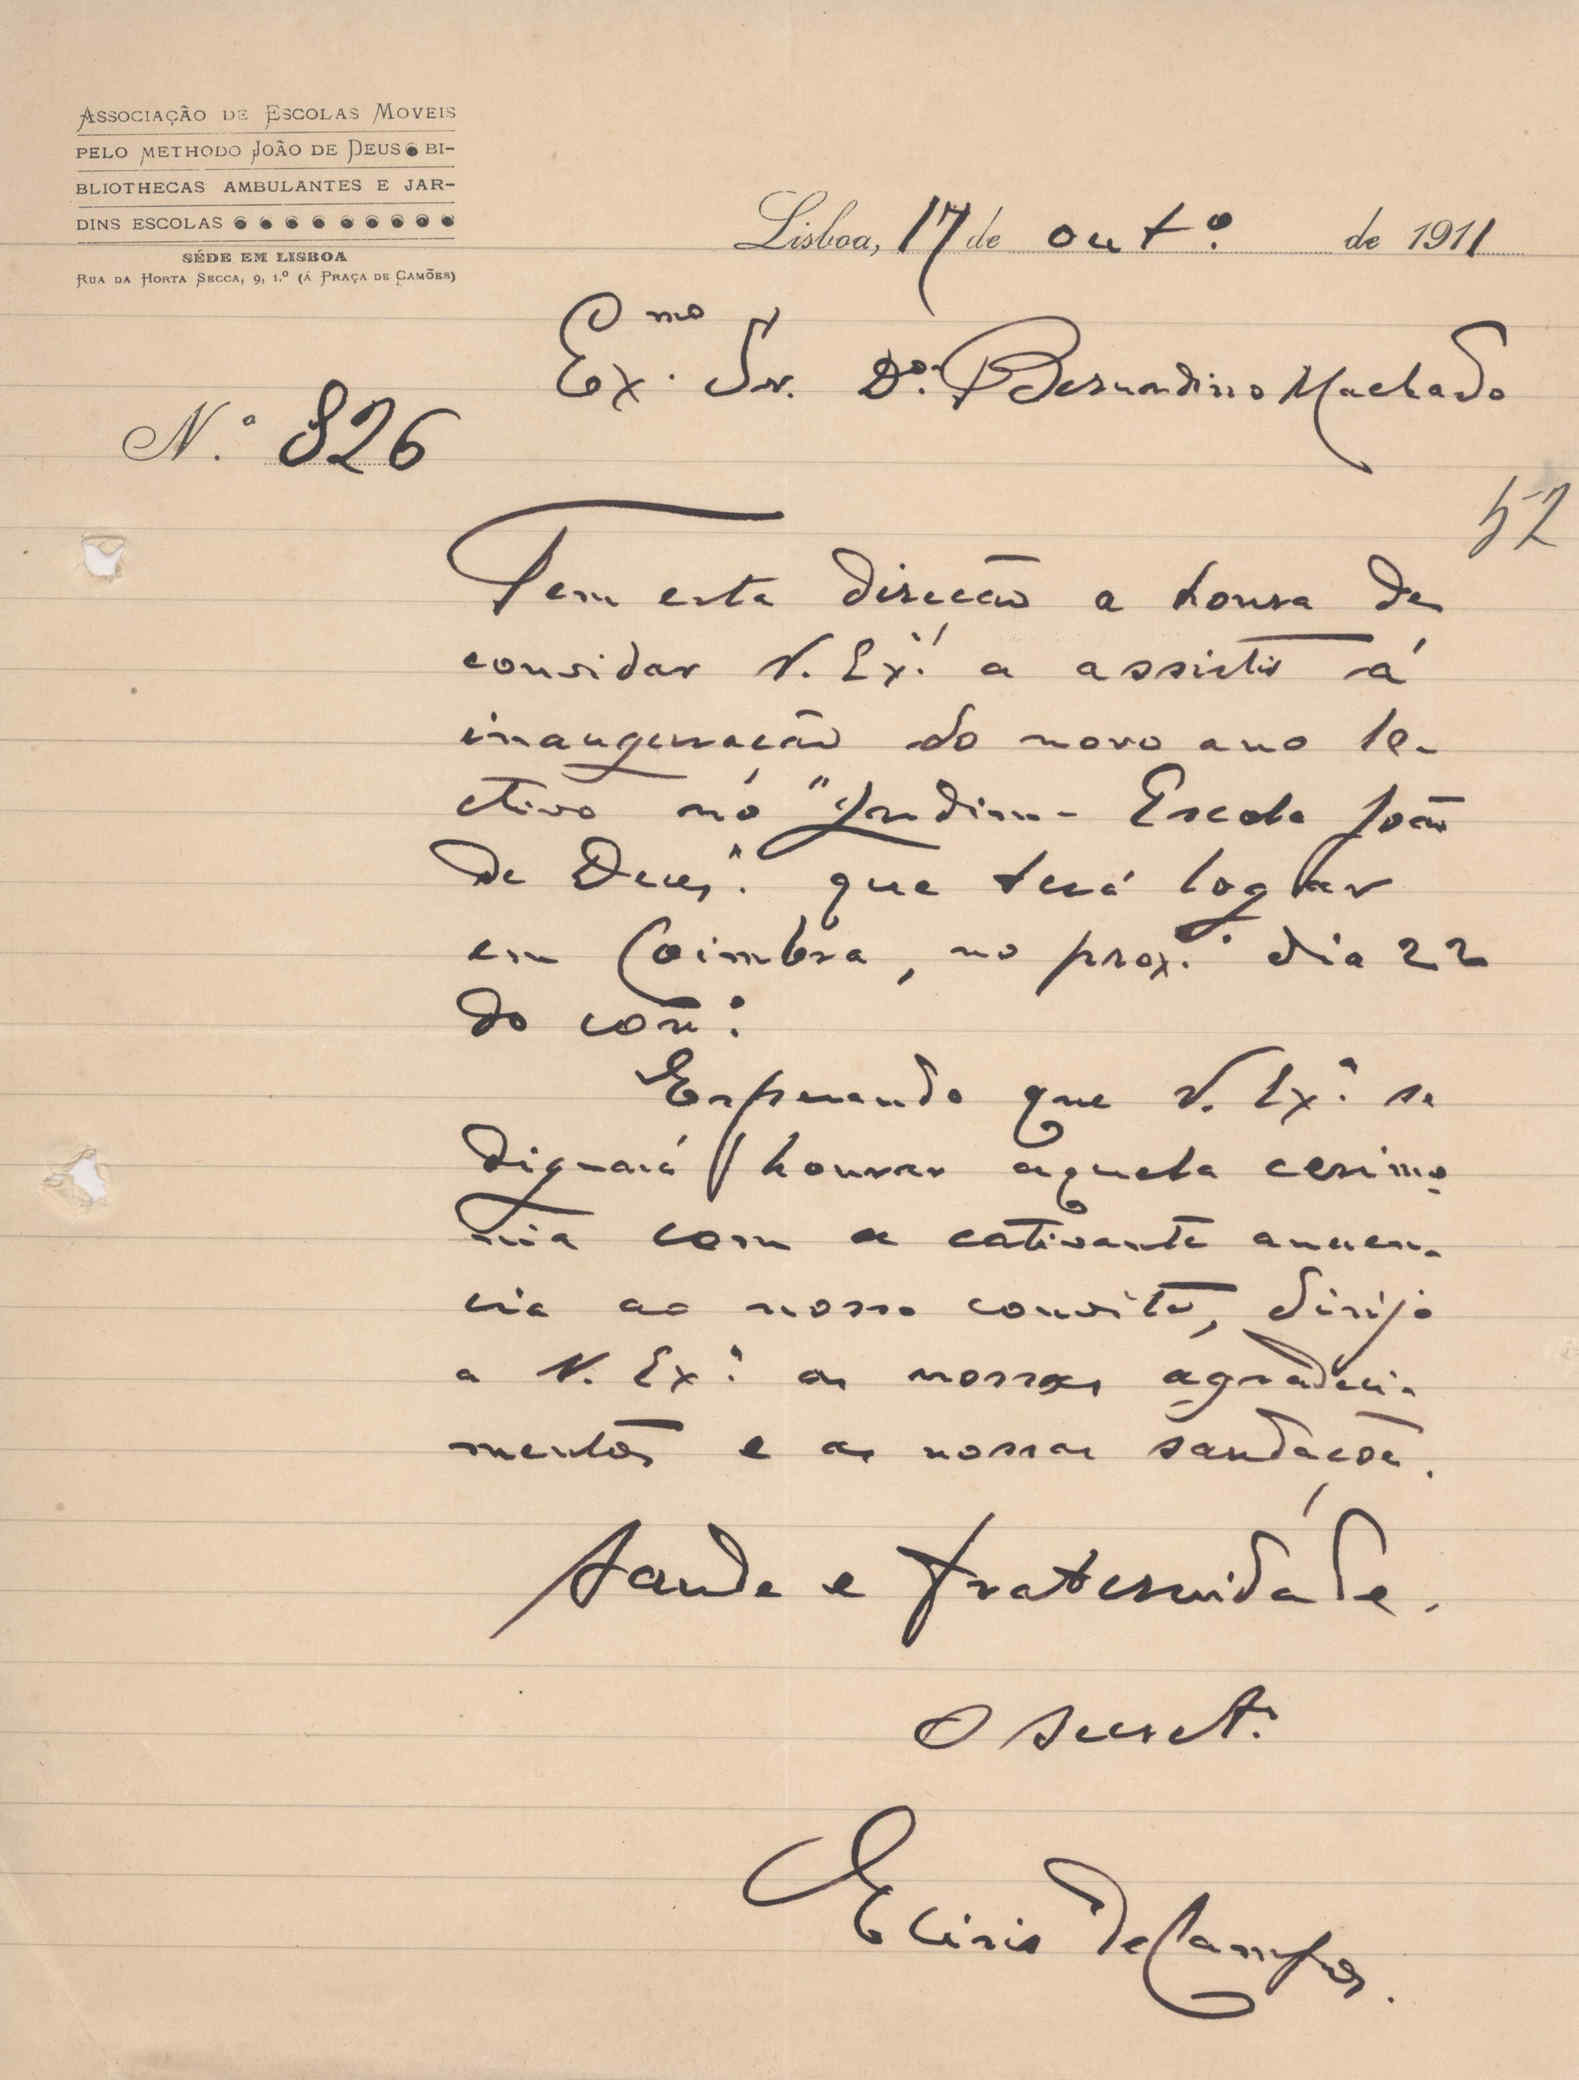 ASSOCIAÇÃO DE ESCOLAS MOVEIS
PELO METHODO JOÃO DE DEUS BI-
BLIOTHECAS AMBULANTES E JAR-
DINS ESCOLAS
SÉDE EM LISBOA
RUA DA HORTA SECCA, 9, 1.º (Á PRAÇA DE CAMÕES)
Lisboa, 17 de outº. de 1911
Exmo. Sr. Dr. Bernardino Machado
N.º 826
52
Tem esta direcção a honra de
convidar V. Exª. a assistir á
inauguração do novo ano le-
ctivo no "Jardim-Escola João
de Deus". que terá logar
em Coimbra, no prox.º dia 22
do corr.e
Esperando que V. Exª. se
dignará honrar aquela cerimo-
nia com a cativante anuen-
cia ao nosso convite, dirijo
a V. Exª. os nossos agradeci-
mentos e as nossas saudações.
Saude e fraternidade.
O Secret.º
de Campos.